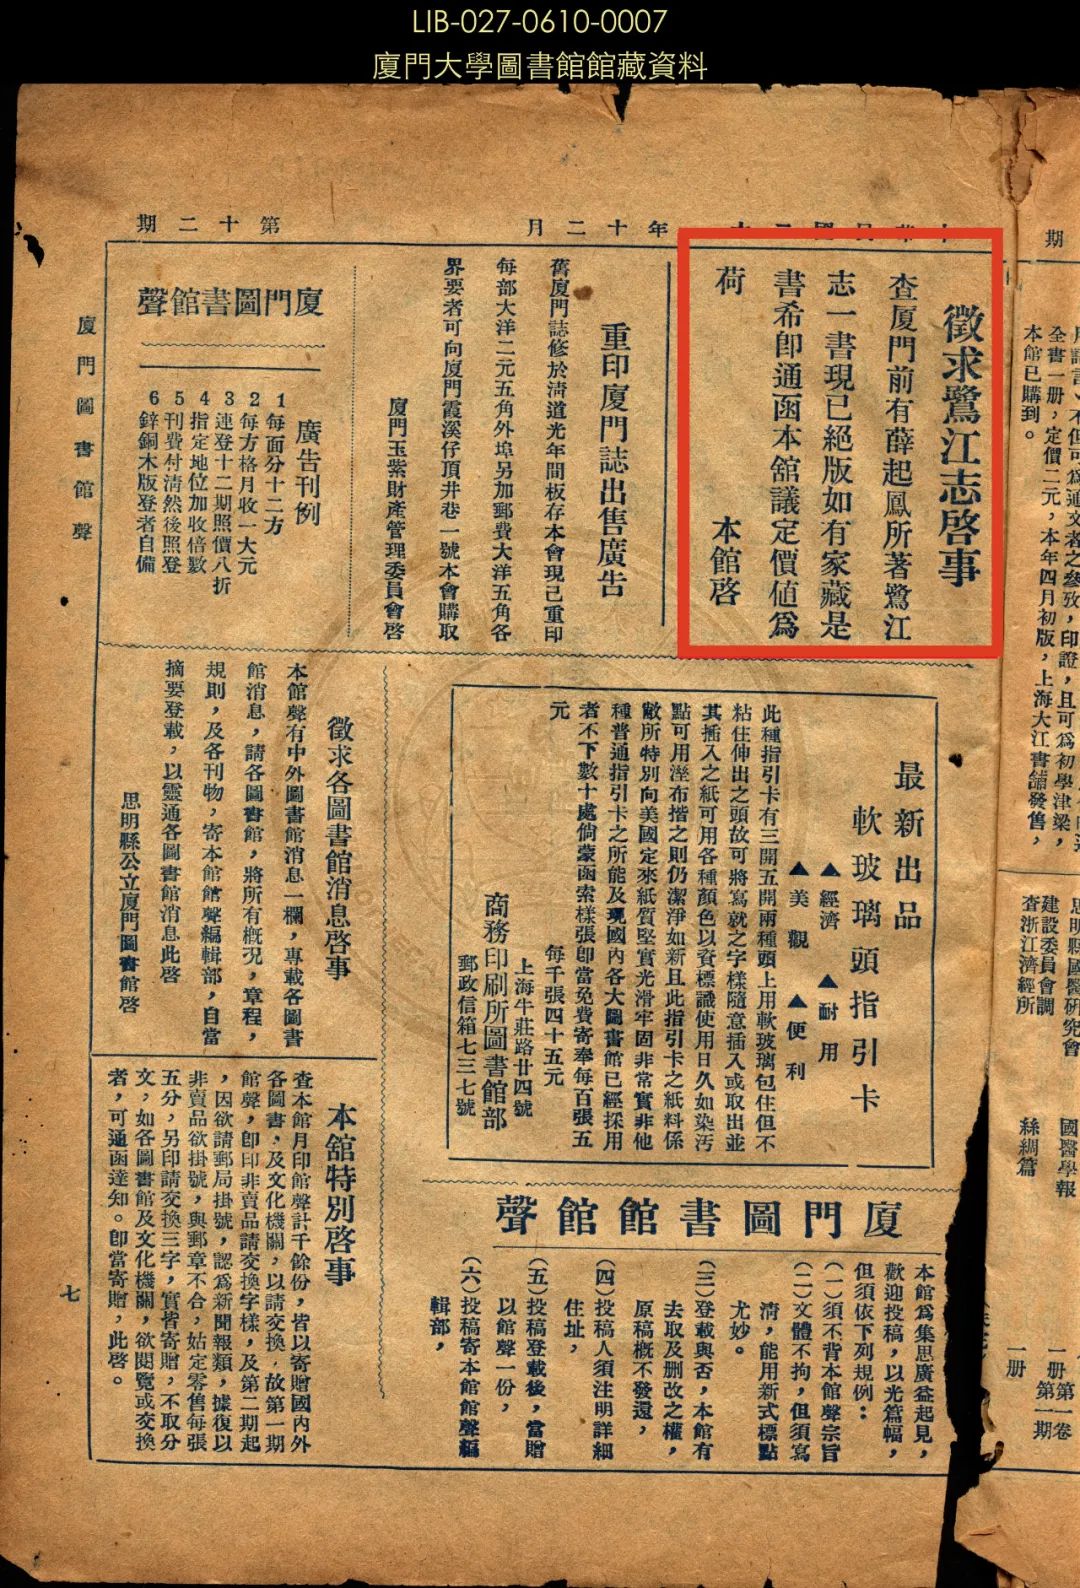 LIB-027-0610-0007
廈門大學圖書館館藏資料
年十二月
第十二期
徵求鷺江志啓事
查厦門前有薛起鳳所著鷺江
志一書現已絕版如有家藏是
書希卽通函本舘議定價値爲
荷
本館啓
重印廈門誌出售廣告
舊廈門誌修於淸道光年間板存本會現已重印
每部大洋二元五角外埠另加郵費大洋五角各
界要者可向廈門霞溪仔頂井巷一號本會購取
廈門玉紫財產管理委員會啓
廈門圖書館聲
廣告刊例
1 每面分十二方
2 每方格月收一大元
3 連登十二期照價八折
4 指定地位加收倍數
5 刊費付淸然後照登
6 鋅銅木版登者自備
最新出品
軟玻璃頭指引卡
▲經濟 ▲耐用
▲美觀 ▲便利
此種指引卡有三開五開兩種頭上用軟玻璃包住但不
粘住伸出之頭故可將寫就之字樣隨意插入或取出並
其插入之紙可用各種顏色以資標識使用日久如染汚
點可用溼布揩之則仍潔淨如新且此指引卡之紙料係
敝所特別向美國定來紙質堅實光滑牢固非常實非他
種普通指引卡之所能及現國內各大圖書館已經採用
者不下數十處倘蒙函索樣張卽當免費寄奉每百張五
元
每千張四十五元
上海牛莊路廿四號
商務印刷所圖書館部
郵政信箱七三七號
徵求各圖書館消息啓事
本館聲有中外圖書館消息一欄，專載各圖書
館消息，請各圖書館，將所有槪況，章程，
規則，及各刊物，寄本館館聲編輯部，自當
摘要登載，以靈通各圖書館消息此啓
思明縣公立廈門圖書館啓
廈門圖書館館聲
本館爲集思廣益起見，
歡迎投稿，以光篇幅，
但須依下列規例：
（一）須不背本館聲宗旨
（二）文體不拘，但須寫
淸，能用新式標點
尤妙。
（三）登載與否，本館有
去取及删改之權，
原稿槪不發還，
（四）投稿人須注明詳細
住址，
（五）投稿登載後，當贈
以館聲一份，
（六）投稿寄本館館聲編
輯部，
本舘特別啓事
查本館月印館聲計千餘份，皆以寄贈國內外
各圖書，及文化機關，以請交換，故第一期
館聲，卽印非賣品請交換字樣，及第二期起
，因欲請郵局掛號，認爲新聞報類，據復以
非賣品欲掛號，與郵章不合，姑定零售每張
五分，另印請交換三字，實皆寄贈，不取分
文，如各圖書館及文化機關，欲閱覽或交換
者，可通函達知。卽當寄贈，此啓。
廈門圖書館聲
七
期
全書一册，定價二元，本年四月初版，上海大江書舖發售，
本館已購到。
思明縣國醫研究會
國醫學報
一册第一卷第一期
建設委員會調
查浙江濟經所
絲綢篇
一册